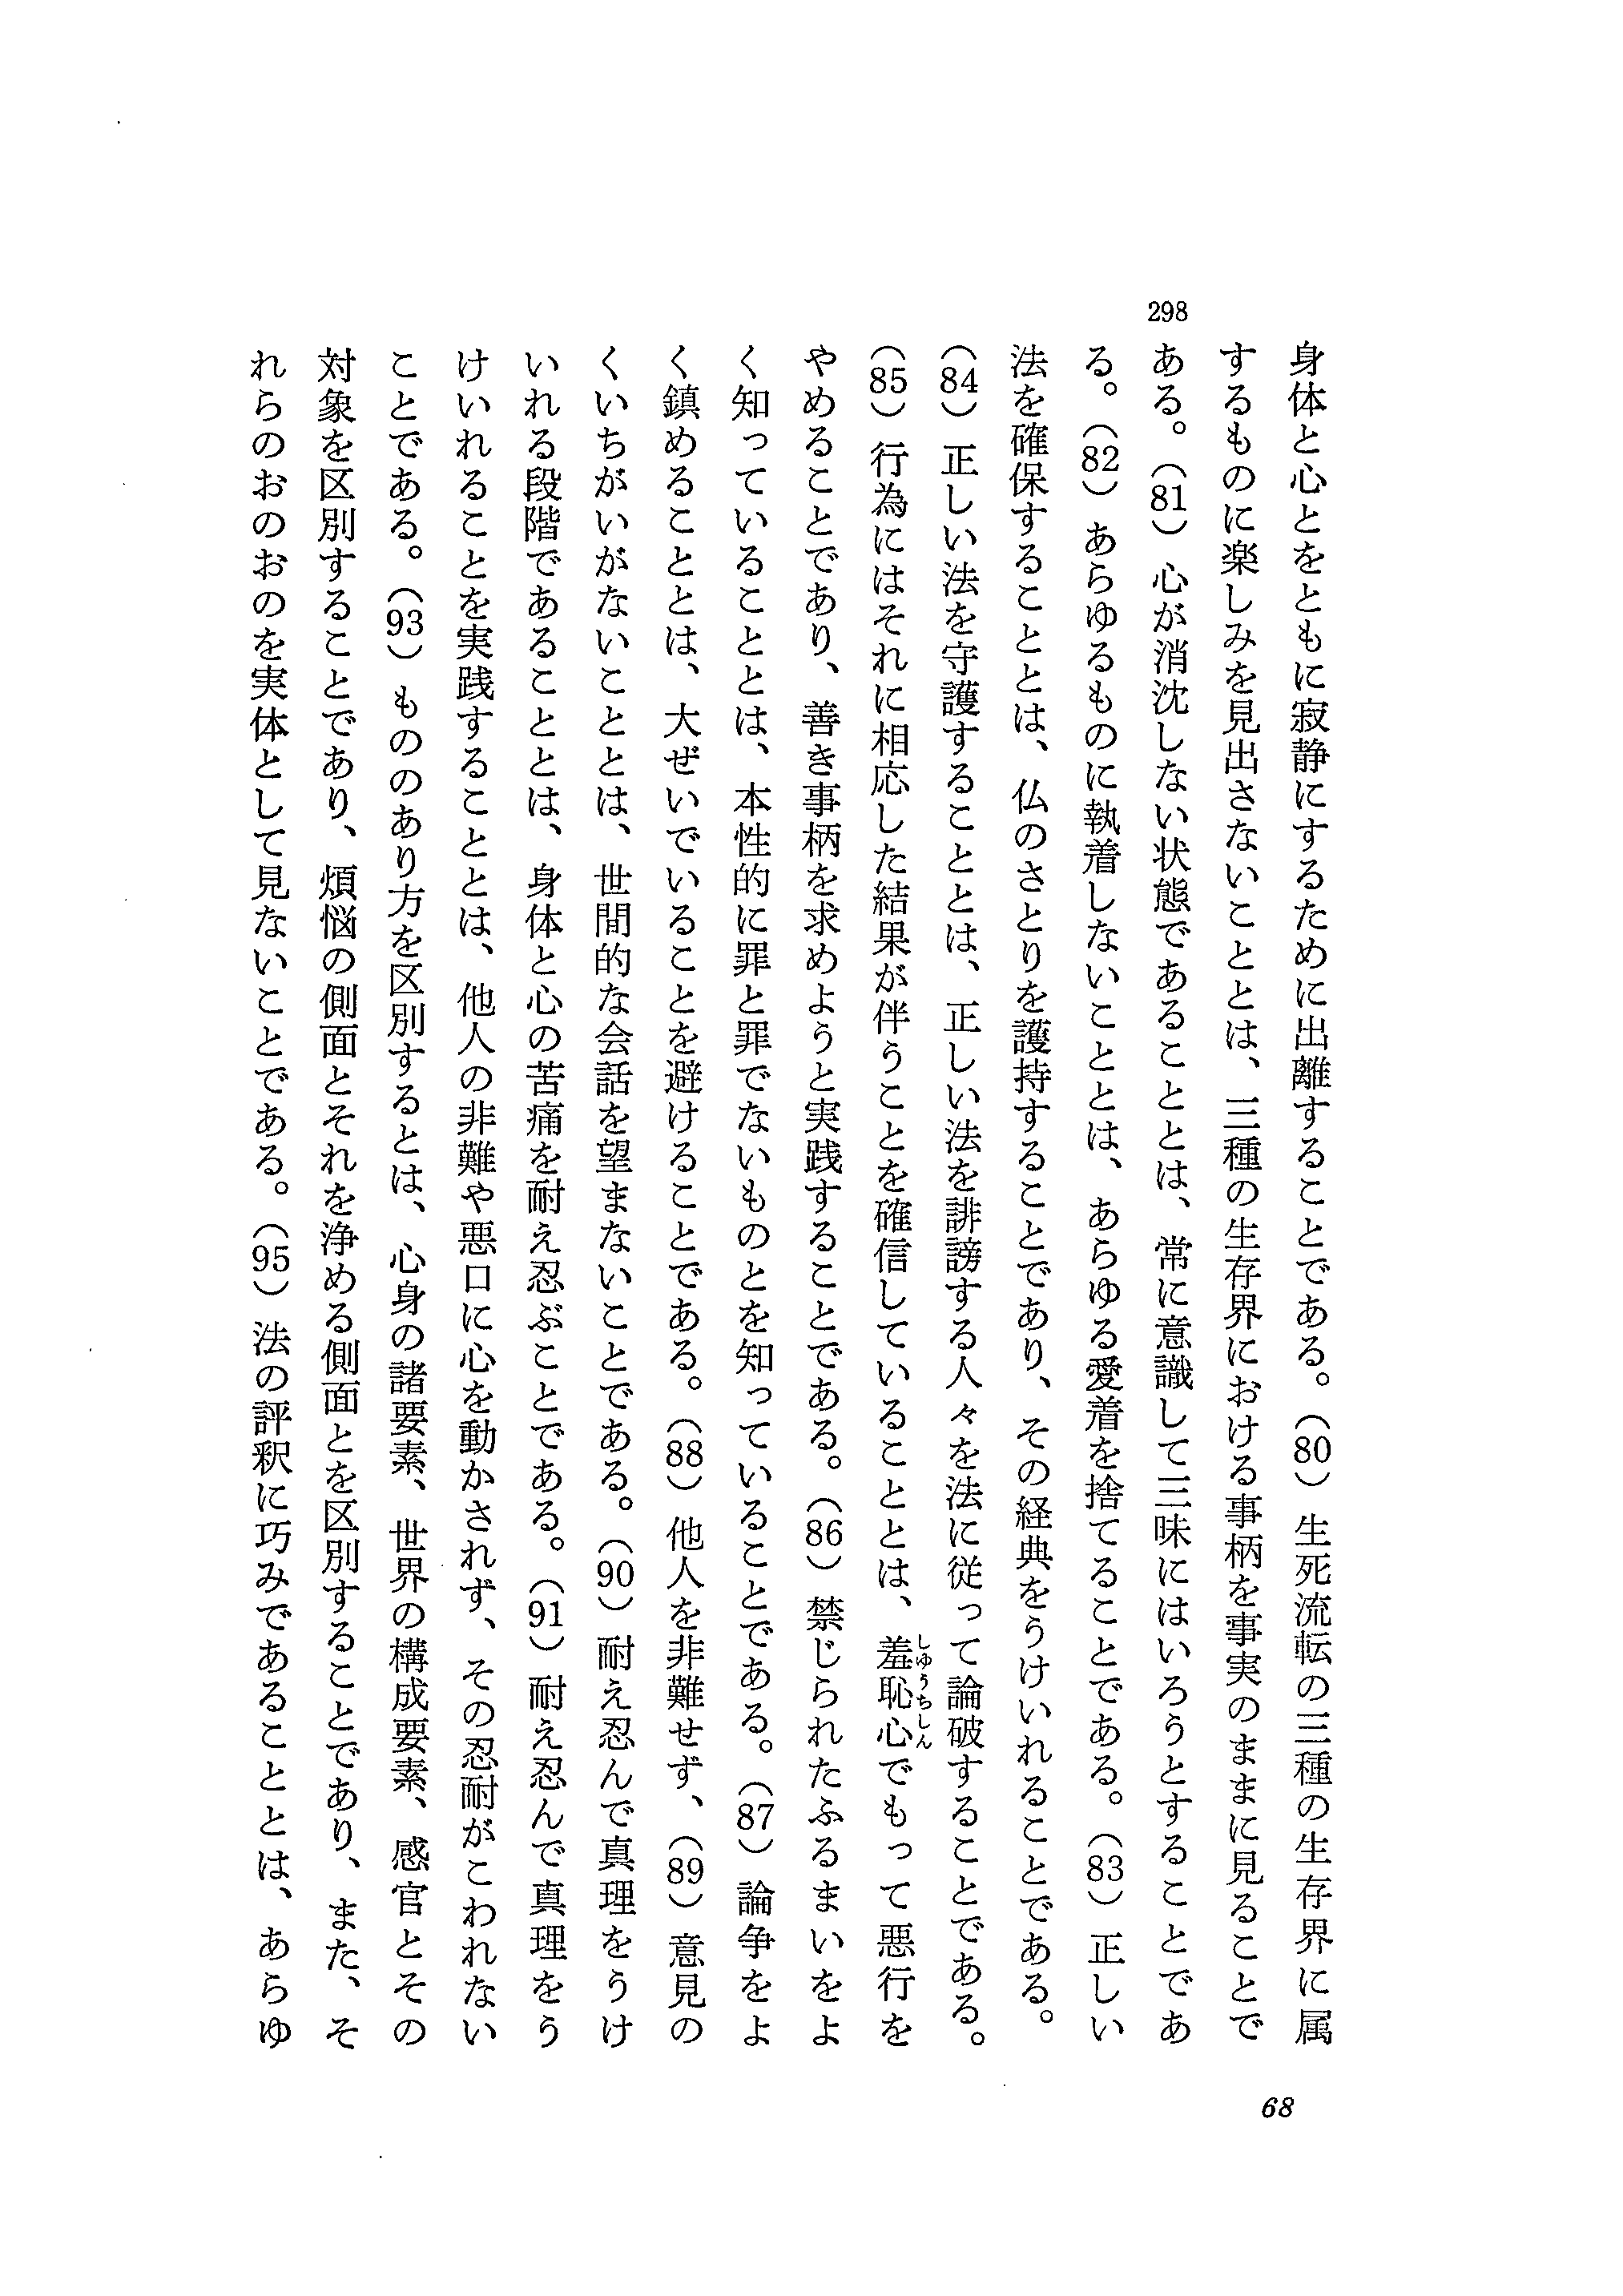 298
身体と心とをともに寂静にするために出離することである。（80）生死流転の三種の生存界に属
するものに楽しみを見出さないこととは、三種の生存界における事柄を事実のままに見ることで
ある。（81）心が消沈しない状態であることとは、常に意識して三昧にはいろうとすることであ
る。（82）あらゆるものに執着しないこととは、あらゆる愛着を捨てることである。（83）正しい
法を確保することとは、仏のさとりを護持することであり、その経典をうけいれることである。
（84）正しい法を守護することとは、正しい法を誹謗する人々を法に従って論破することである。
（85）行為にはそれに相応した結果が伴うことを確信していることとは、羞恥心でもって悪行を
しゅうちしん
やめることであり、善き事柄を求めようと実践することである。（86）禁じられたふるまいをよ
く知っていることとは、本性的に罪と罪でないものとを知っていることである。（87）論争をよ
く鎮めることとは、大ぜいでいることを避けることである。（88）他人を非難せず、（89）意見の
くいちがいがないこととは、世間的な会話を望まないことである。（90）耐え忍んで真理をうけ
いれる段階であることとは、身体と心の苦痛を耐え忍ぶことである。（91）耐え忍んで真理をう
けいれることを実践することとは、他人の非難や悪口に心を動かされず、その忍耐がこわれない
ことである。（93）もののあり方を区別するとは、心身の諸要素、世界の構成要素、感官とその
対象を区別することであり、煩悩の側面とそれを浄める側面とを区別することであり、また、そ
れらのおのおのを実体として見ないことである。（95）法の評釈に巧みであることとは、あらゆ
68